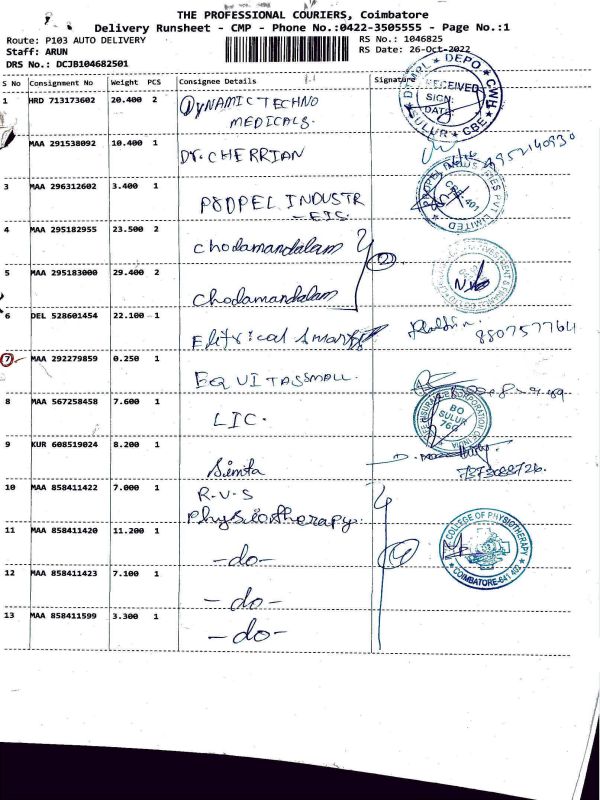 THE PROFESSIONAL COURIERS, Coimbatore
Delivery Runsheet - CMP - Phone No.:0422-3505555 - Page No.:1
Route: P103 AUTO DELIVERY
RS No.: 1046825
Staff: ARUN
RS Date: 26-Oct-2022
DRS No.: DCJB104682501
S No Consignment No Weight PCS Consignee Details Signature
1 HRD 713173602 20.400 2 DYNAMIC TECHNO
MEDICALS.
RECEIVED
SIGN:
DATE:
DEPO CWH
SULUR CBE
2 MAA 291538092 10.400 1 Dr. CHERRIAN
9952140930
3 MAA 296312602 3.400 1 PROPEL INDUSTR
-EIS.
PROPEL INDUSTRIES PVT LIMITED
4 MAA 295182955 23.500 2 chodamandalam
2
5 MAA 295183000 29.400 2 chodamandalam
6 DEL 528601454 22.100 1
8807577764
7 MAA 292279859 0.250 1 EQUITASSMALL.
8 MAA 567258458 7.600 1 LIC.
LIFE INSURANCE CORPORATION OF INDIA
BO
SULUR
766
9 KUR 608519024 8.200 1 Simta
10 MAA 858411422 7.000 1 R.V.S
physiotherapy.
11 MAA 858411420 11.200 1 -do-
4
COLLEGE OF PHYSIOTHERAPY
COIMBATORE-641 402
12 MAA 858411423 7.100 1 -do-
13 MAA 858411599 3.300 1 -do-